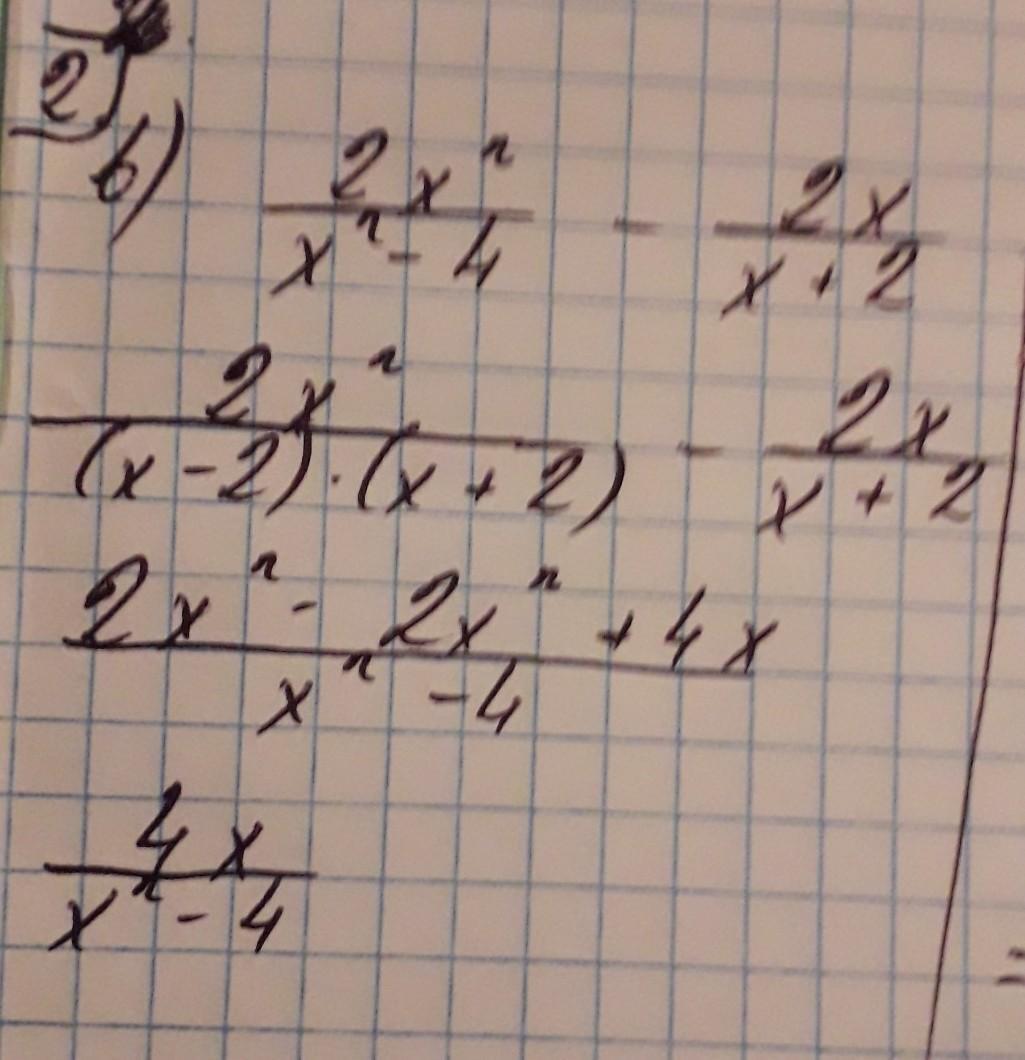 2)
б) 2x² / x² - 4 - 2x / x + 2
2x² / (x - 2) · (x + 2) - 2x / x + 2
2x² - 2x² + 4x / x² - 4
4x / x² - 4
=